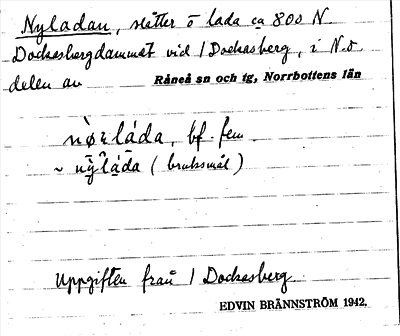 Nyladan, slåtter o lada ca 800 N.
Dockasbergdammet vid 1 Dockasberg, i N.ö.
delen av Råneå sn och tg, Norrbottens län
bf. fem.
~ nȳláda (bruksmål)
Uppgiften från 1 Dockasberg.
EDVIN BRÄNNSTRÖM 1942.